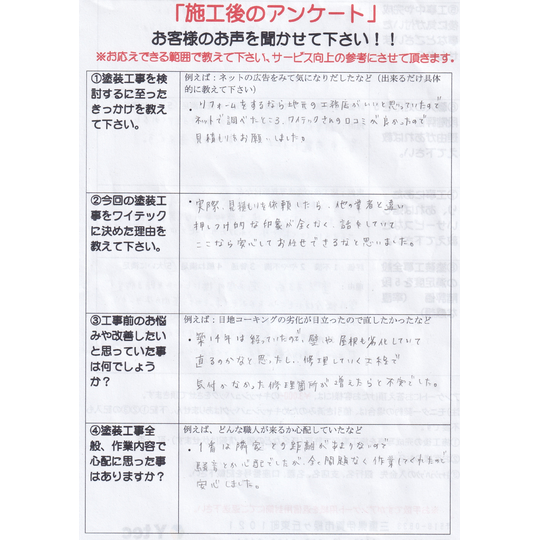 「施工後のアンケート」
お客様のお声を聞かせて下さい！！
※お応えできる範囲で教えて下さい、サービス向上の参考にさせて頂きます。
①塗装工事を検
討するに至った
きっかけを教え
て下さい。
例えば：ネットの広告をみて気になりだしたなど（出来るだけ具体
的に教えて下さい）
・リフォームをするなら地元の工務店がいいと思っていたので
ネットで調べたところ、ワイテックさんの口コミが良かったので
見積もりをお願いしました。
②今回の塗装工
事をワイテック
に決めた理由を
教えて下さい。
・実際、見積もりを依頼したら、他の業者と違い
押しつけ的な印象が全くなく、話をしていて
ここなら安心してお任せできるなと思いました。
③工事前のお悩
みや改善したい
と思っていた事
は何でしょう
か？
例えば：目地コーキングの劣化が目立ったので直したかったなど
・築14年は経っていたので、壁や屋根も劣化していて
直るのかなと思ったし、修理していく工程で
気付かなかった修理箇所が増えたらと不安でした。
④塗装工事全
般、作業内容で
心配に思った事
はありますか？
例えば、どんな職人が来るか心配していたなど
・1番は隣家との距離があまりないので
騒音とか心配でしたが、全く問題なく作業してくれたので
安心しました。